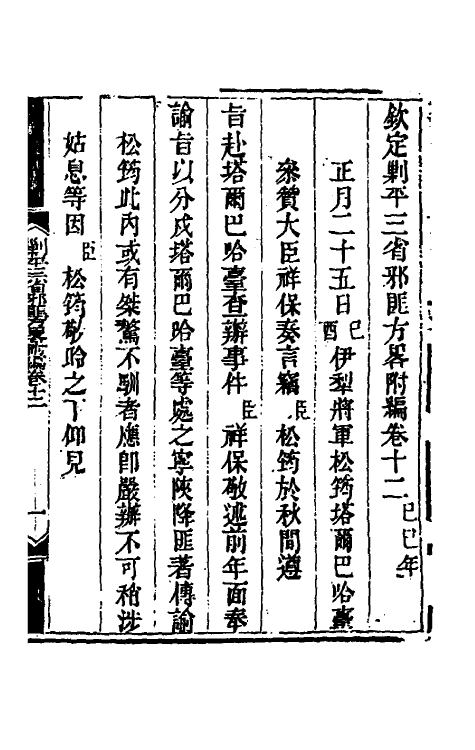 欽定剿平三省邪匪方畧附編卷十二 己巳年
正月二十五日己酉伊犁將軍松筠塔爾巴哈臺
參贊大臣祥保奏言竊臣松筠於秋間遵
旨赴塔爾巴哈臺查辦事件臣祥保敬述前年面奉
諭旨以分戍塔爾巴哈臺等處之寧陜降匪著傳諭
松筠此內或有桀驁不馴者應卽嚴辦不可稍涉
姑息等因臣松筠敬聆之下仰見
剿平三省邪匪方畧附編卷十二
一